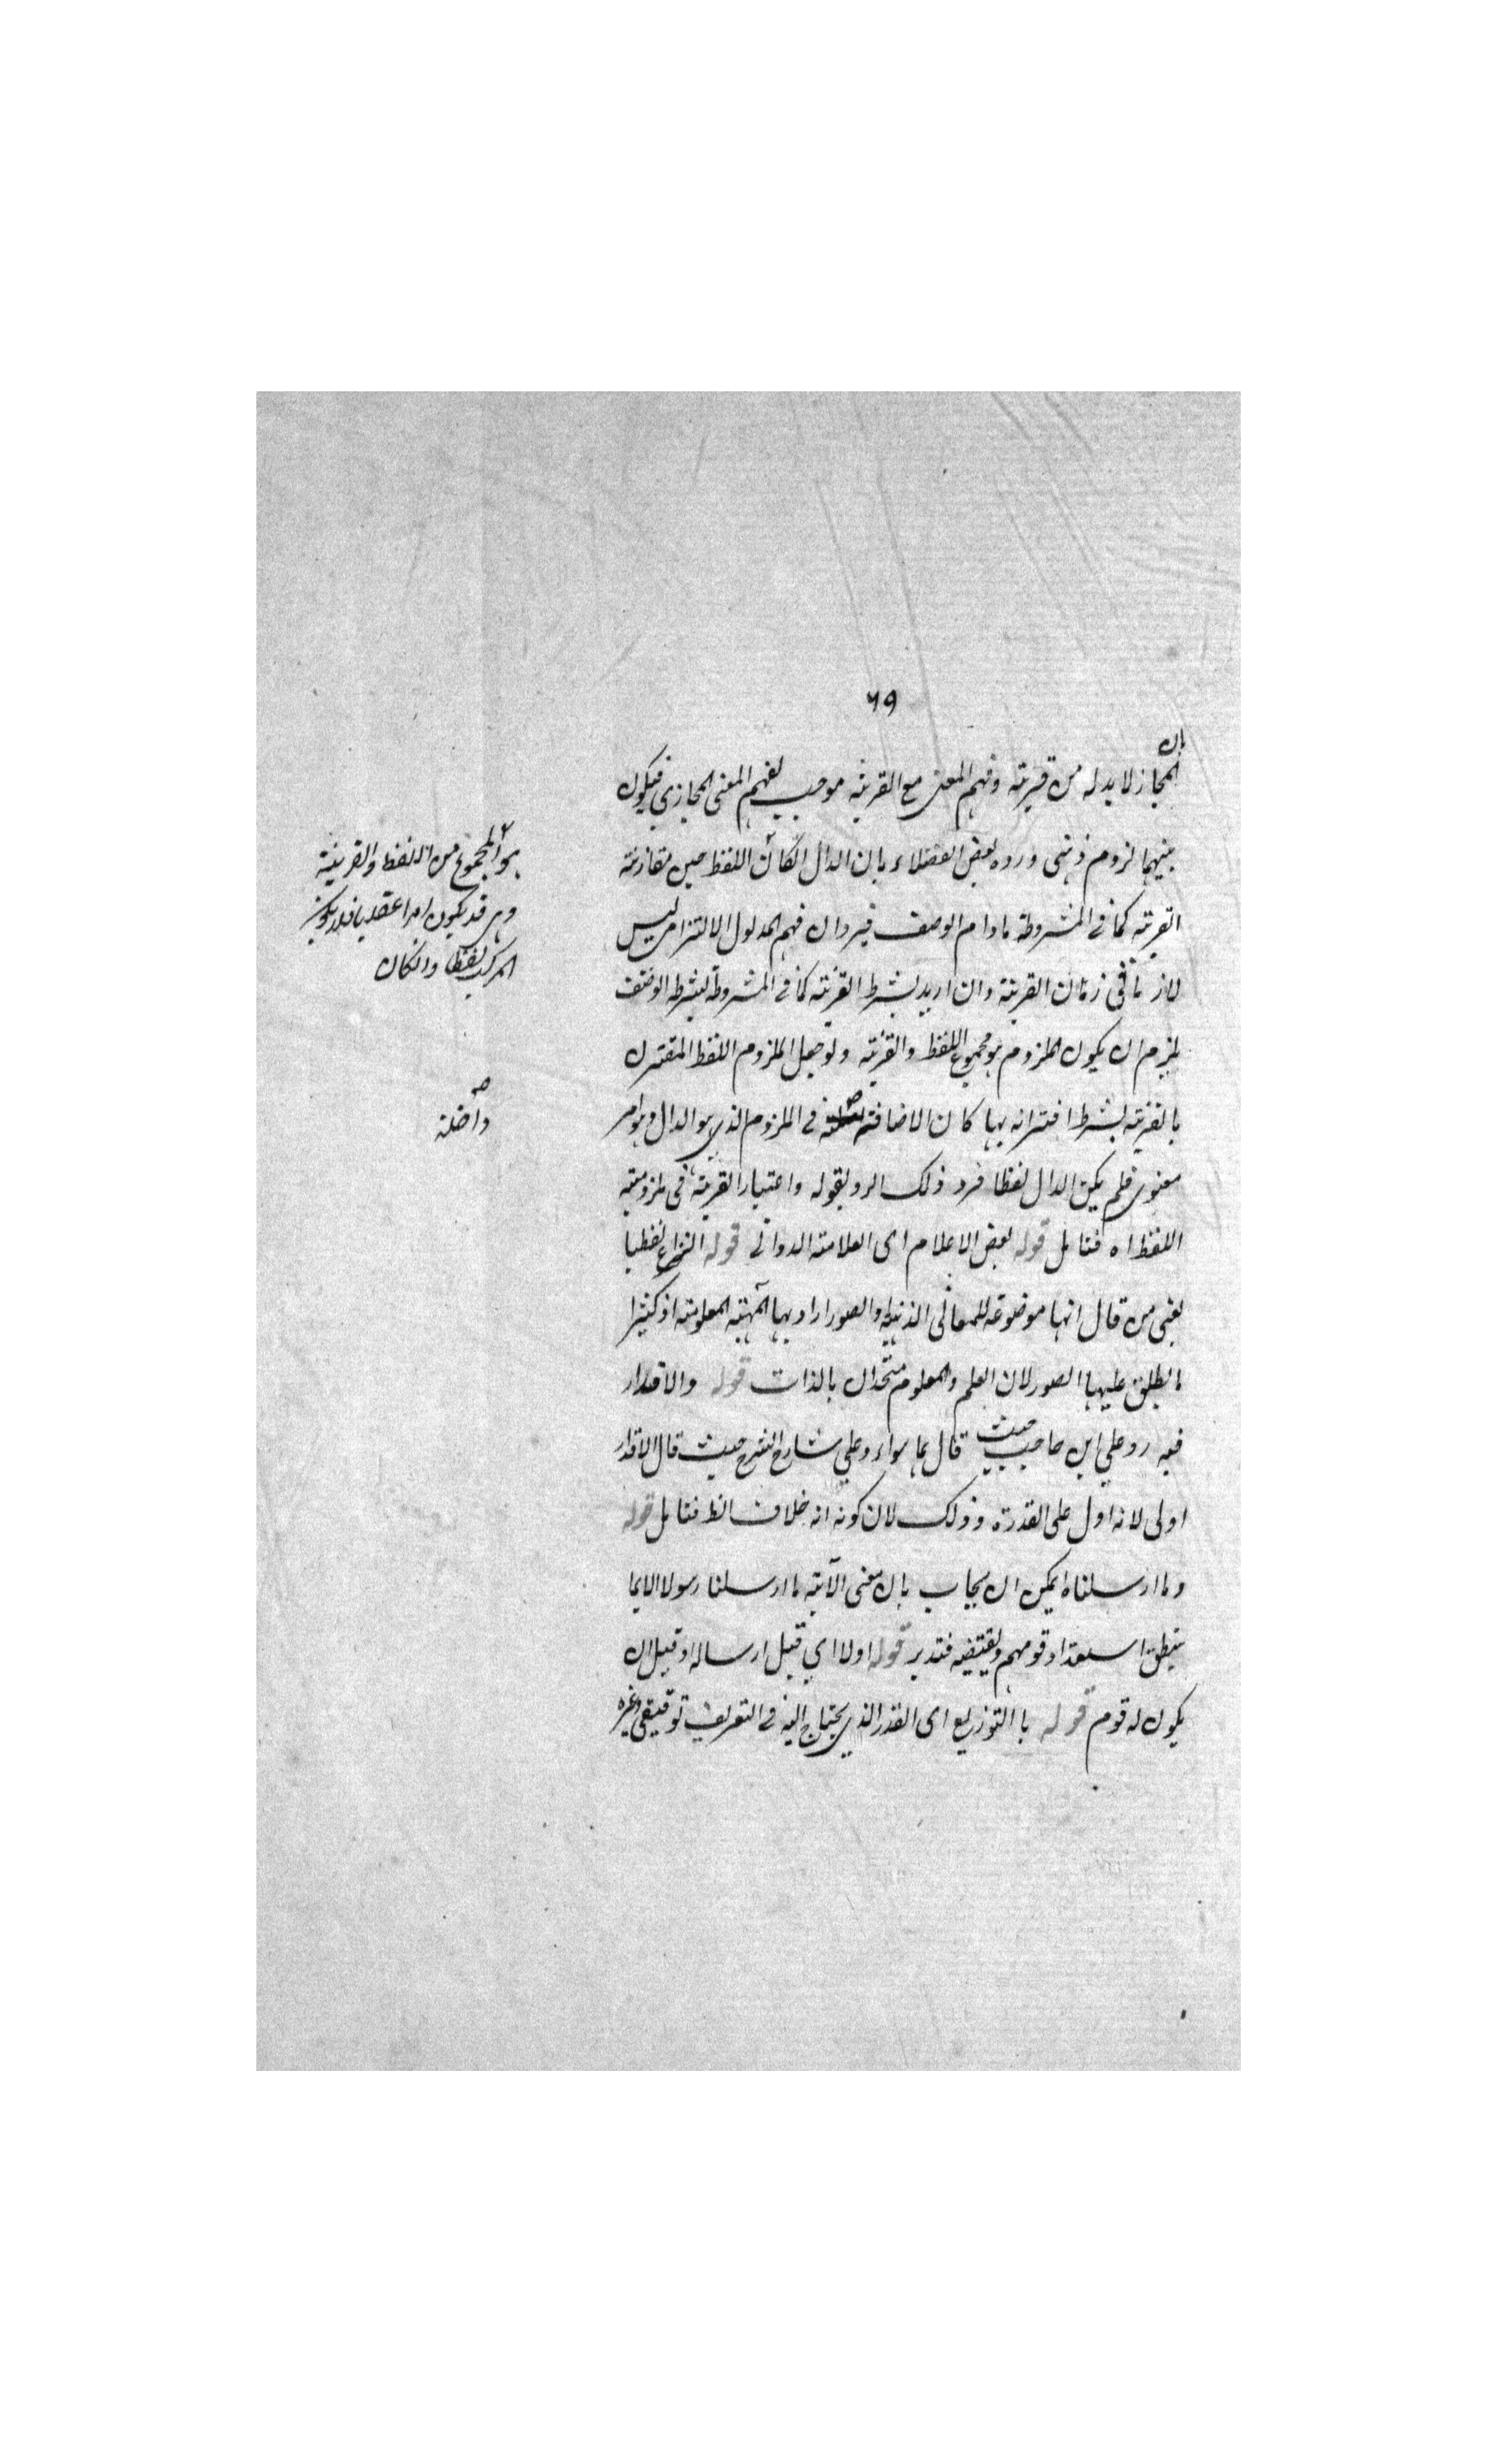 ٦٩
بان
المجاز لا بد له من قرينة وفهم المعنى مع القرينة موجب لفهم المعنى المجازي فيكون
بينهما لزوم ذهنى ورده بعض الفضلاء بان الدال اللفظ حين مقارنة
القرينة كما فى المشروطة مادام الوصف فيرد ان فهم المدلول الالتزامى ليس
لازما فى زمان القرينة وان اريد بشرط القرينة كما فى المشروطة بشرط الوصف
يلزم ان يكون الملزوم هو مجموع اللفظ والقرينة ولو جعل الملزوم اللفظ المقترن
بالقرينة بشرط اقترانه بها كان الاضافة فى الملزوم الذي هو الدال وهو امر
معنوى فلم يكن الدال لفظا فرد ذلك الرد بقوله واعتبار القرينة فى ملزومية
اللفظ اه فتامل قوله بعض الاعلام اى العلامة الدوانى قوله النزاع لفظيا
يعنى من قال انها موضوعة للمعانى الذهنية والصور اراد بها المهية المعلومة اذ كثيرا
ما يطلق عليها الصور لان العلم والمعلوم متحدان بالذات قوله والاقدار
فيه رد على ابن حاجب حيث قال بما سواء وعلى شارح الشرح حيث قال الاقدار
اولى لانه اول على القدرة وذلك لان كونه انه خلاف الظ فتامل قوله
وما ارسلنا اه يمكن ان يجاب بان معنى الآية ما ارسلنا رسولا الا بما
ينطق استعداد قومهم ويقتضيه فتدبر قوله اولا اي قبل ارساله او قبل ان
يكون له قوم قوله با التوزيع اى القدر الذي يحتاج اليه فى التعريف توقيفى وغيره
هو المجموع من اللفظ والقرينة
وهى قد يكون امرا عقليا فلا يكون
المركب لفظا وان كان
صح
داخلة